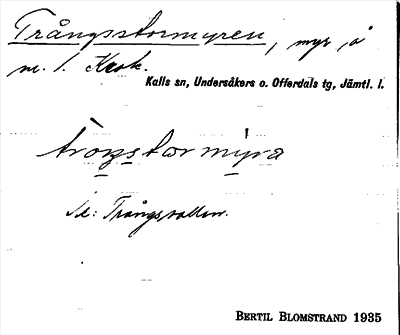 Trångsstormyren, myr, å
nr. 1. Krok.
Kalls sn, Undersåkers o. Offerdals tg, Jämtl. l.
trɔŋstɔrmyra
Se: Trångsvallen.
BERTIL BLOMSTRAND 1935